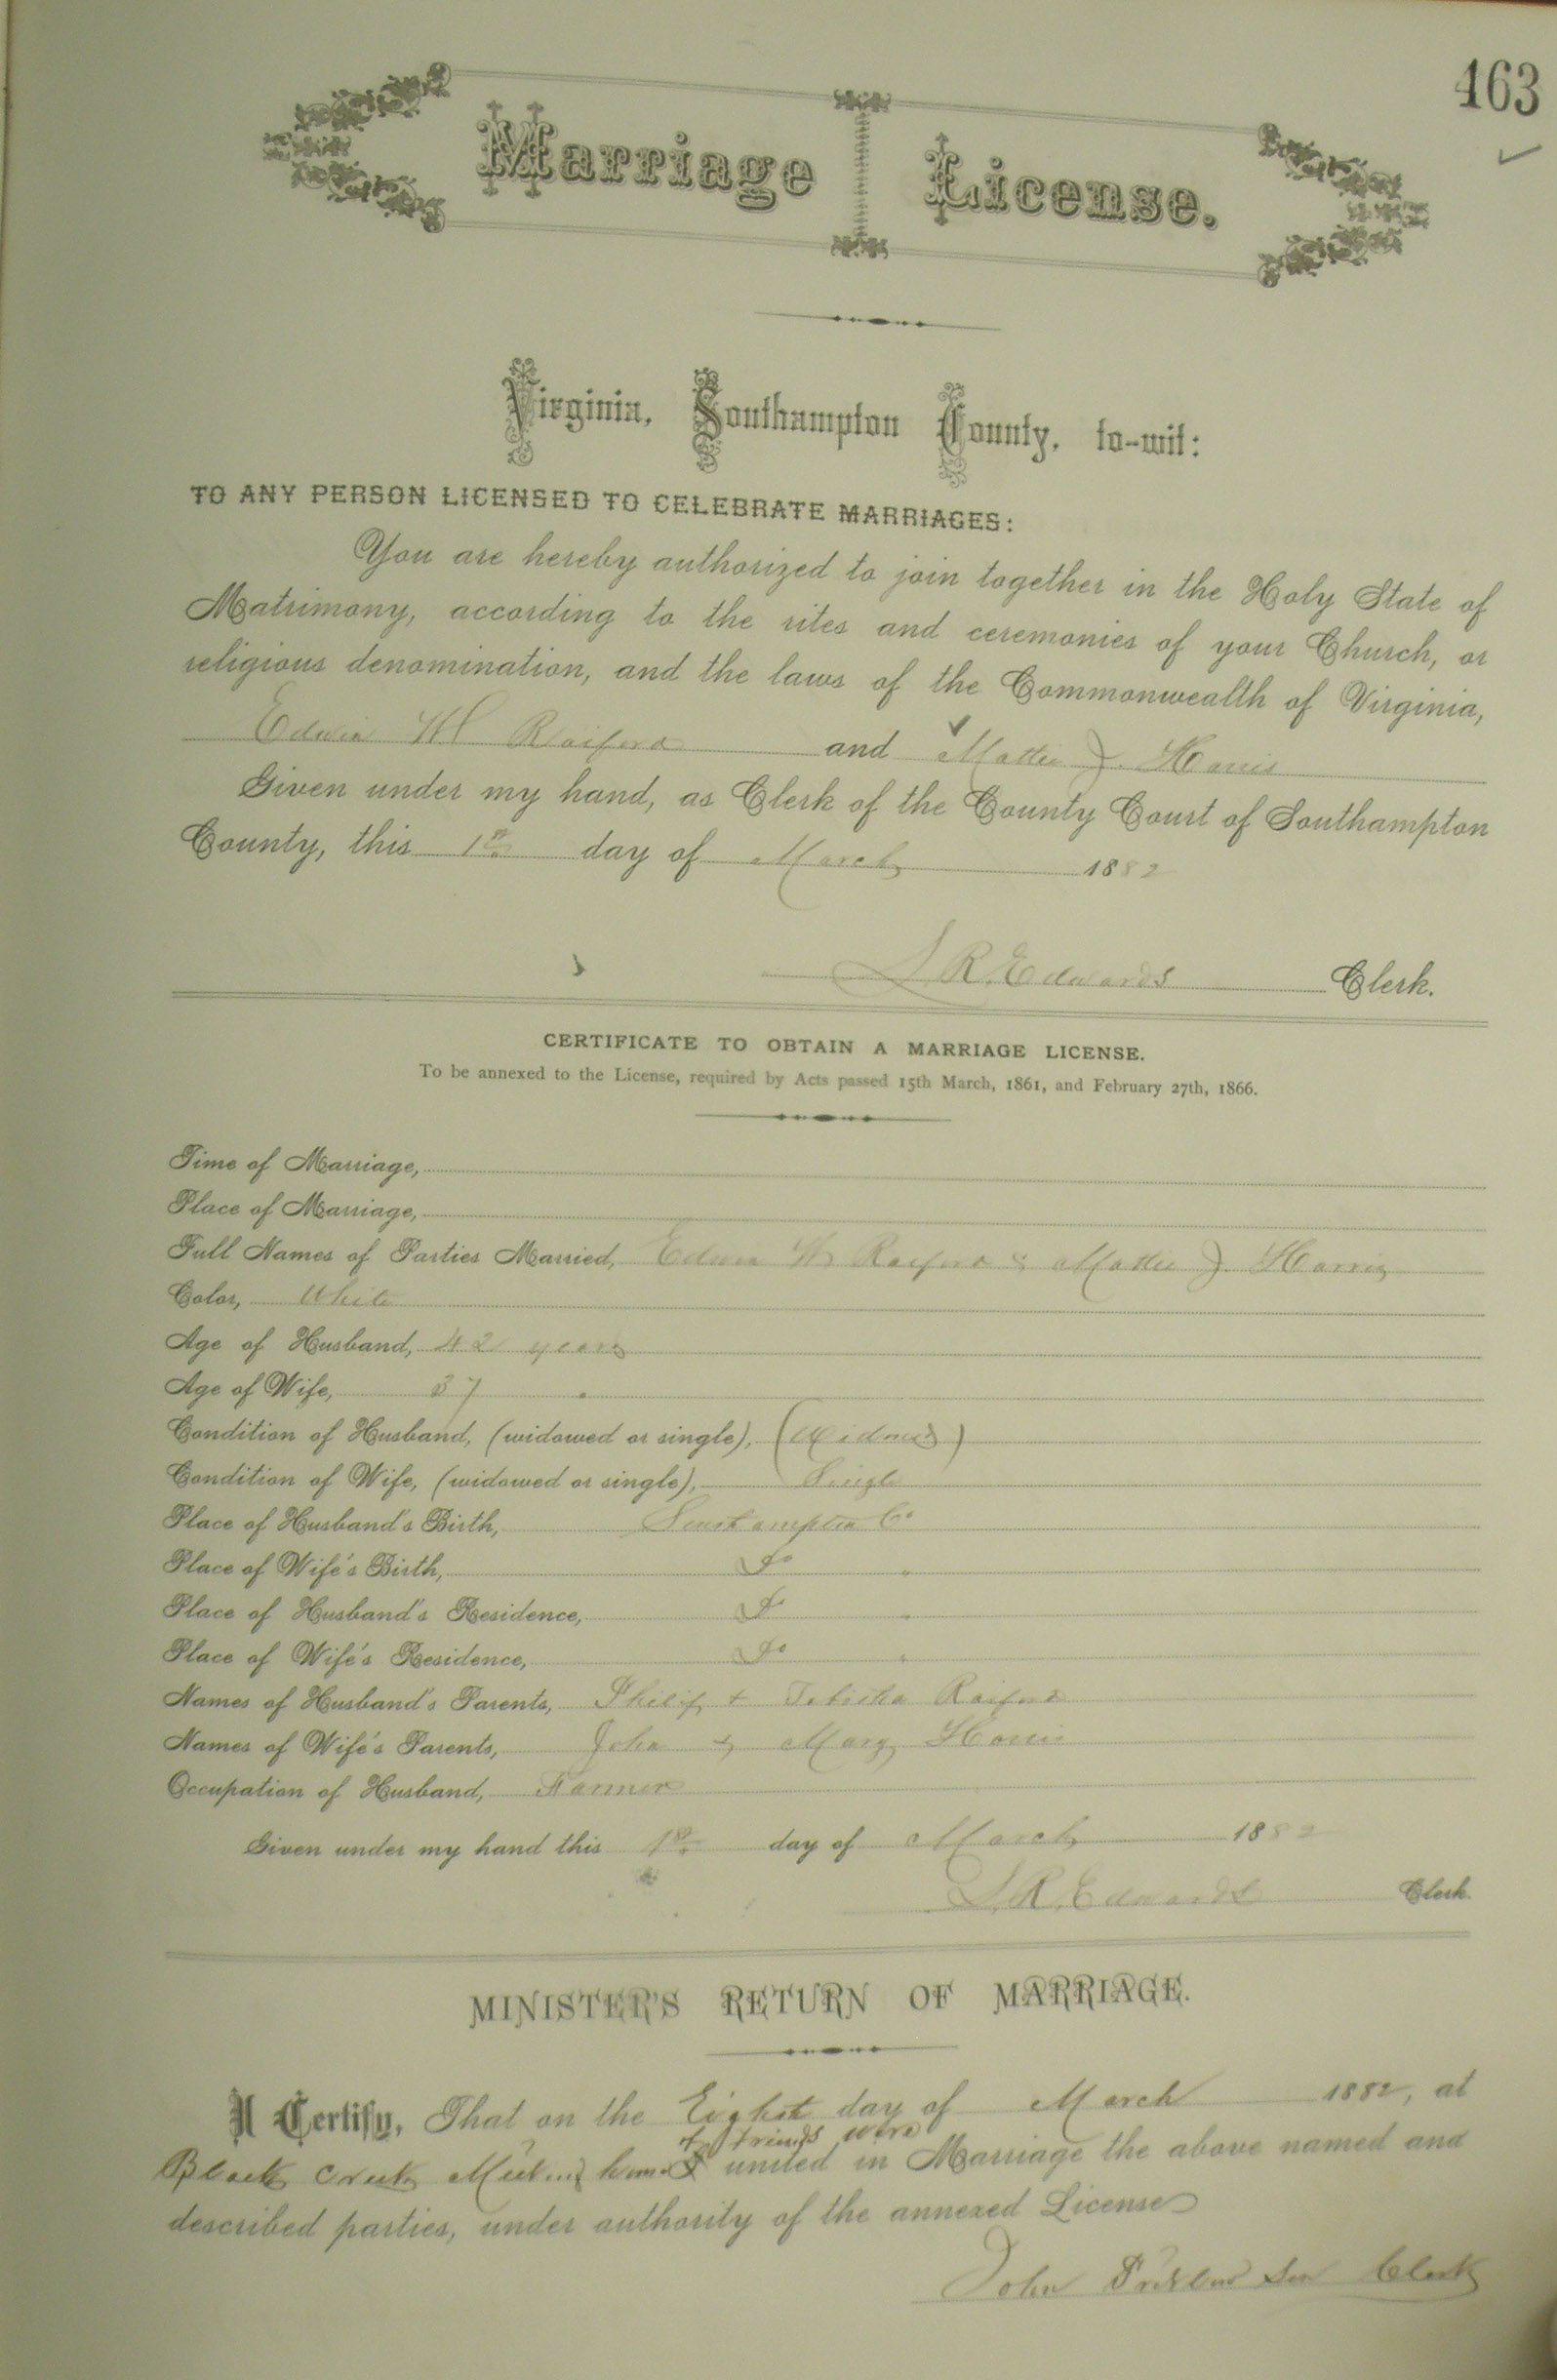 463
Marriage License.
Virginia, Southampton County, to-wit:
TO ANY PERSON LICENSED TO CELEBRATE MARRIAGES:
You are hereby authorized to join together in the Holy State of
Matrimony, according to the rites and ceremonies of your Church, or
religious denomination, and the laws of the Commonwealth of Virginia,
Edwin W Raiford and Mattie J. Harris
Given under my hand, as Clerk of the County Court of Southampton
County, this 1st day of March 1882
L. R. Edwards Clerk.
CERTIFICATE TO OBTAIN A MARRIAGE LICENSE.
To be annexed to the License, required by Acts passed 15th March, 1861, and February 27th, 1866.
Time of Marriage,
Place of Marriage,
Full Names of Parties Married, Edwin W Raiford & Mattie J. Harris
Color, White
Age of Husband, 42 years
Age of Wife, 37 "
Condition of Husband, (widowed or single), (Widowed)
Condition of Wife, (widowed or single), Single
Place of Husband's Birth, Southampton Co
Place of Wife's Birth, Do "
Place of Husband's Residence, Do "
Place of Wife's Residence, Do "
Names of Husband's Parents, Philip & Tabitha Raiford
Names of Wife's Parents, John & Mary Harris
Occupation of Husband, Farmer
Given under my hand this 1st day of March 1882
L. R. Edwards Clerk.
MINISTER'S RETURN OF MARRIAGE.
I Certify, That on the Eighth day of March 1882, at
of friends were
Black Creek Meeting house united in Marriage the above named and
described parties, under authority of the annexed License
John Clerk